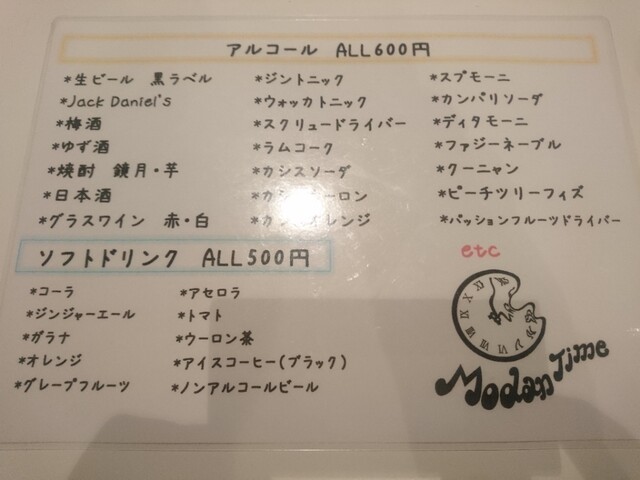 アルコール ALL600円
*生ビール 黒ラベル
*Jack Daniel's
*梅酒
*ゆず酒
*焼酎 鏡月・芋
*日本酒
*グラスワイン 赤・白
*ジントニック
*ウォッカトニック
*スクリュードライバー
*ラムコーク
*カシスソーダ
*カシ ーロン
*カシ レンジ
*スプモーニ
*カンパリソーダ
*ディタモーニ
*ファジーネーブル
*クーニャン
*ピーチツリーフィズ
*パッションフルーツドライバー
etc
ソフトドリンク ALL500円
*コーラ
*ジンジャーエール
*ガラナ
*オレンジ
*グレープフルーツ
*アセロラ
*トマト
*ウーロン茶
*アイスコーヒー(ブラック)
*ノンアルコールビール
Modan Time